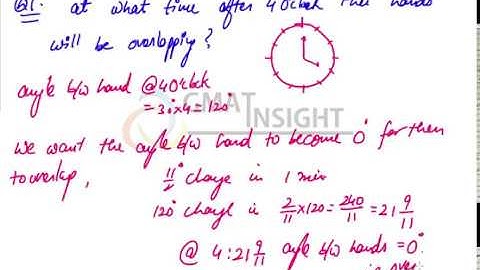 Q1. at what time after 4 O'clock the hands
will be overlapping?
angle b/w hand @ 4 O'clock
= 30° × 4 = 120°
GMAT INSIGHT
We want the angle b/w hand to become 0° for them
to overlap,
11/2° change in 1 min
120° change in 2/11 × 120 = 240/11 = 21 9/11
@ 4:21 9/11 angle b/w hands = 0°